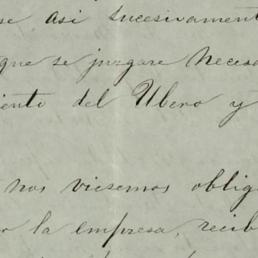 se asi sucesivament
que se juzgare necesa
iento del Ubero y
nos viesemos oblig
o la empresa, recib